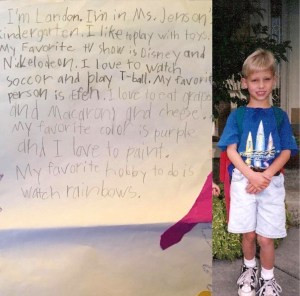 I'm Landon. I'm in Ms. Jonson's
Kindergarten. I like to play with toys.
My Favorite TV show is Disney and
Nikelodeon. I love to watch
soccor and play T-ball. My favorite
person is Ellen. I love to eat grapes
and Macaroni and cheese.
My favorite color is purple
and I love to paint.
My favorite hobby to do is
watch rainbows.